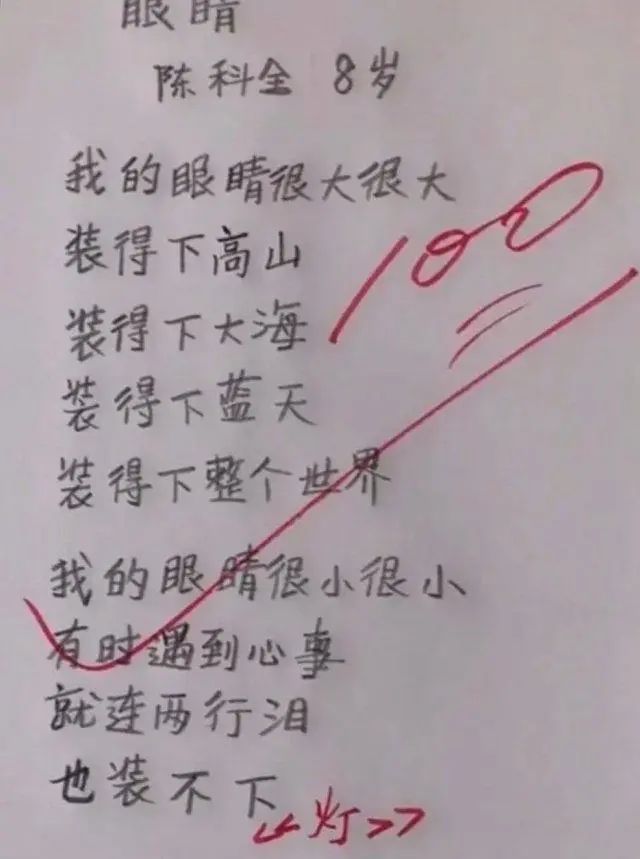 眼睛
陈科全 8岁
我的眼睛很大很大
装得下高山
装得下大海
装得下蓝天
装得下整个世界
我的眼睛很小很小
有时遇到心事
就连两行泪
也装不下
100
《灯》